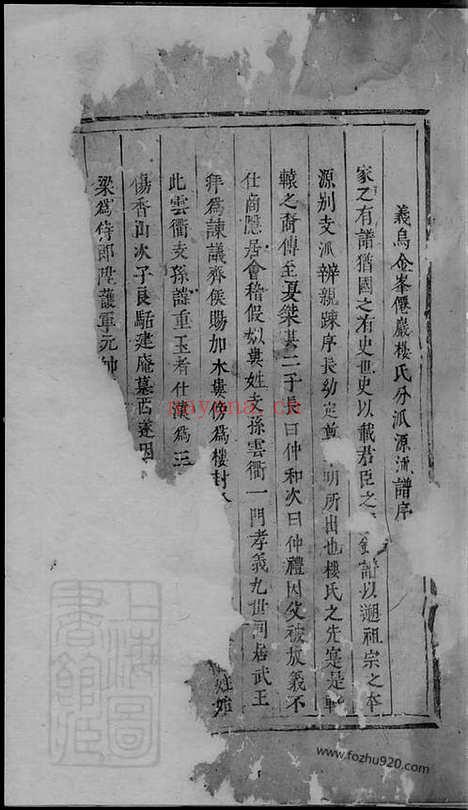 義烏金峯僊巖樓氏分派源流譜序
家乙有譜猶國之有史也史以載君臣之 譜以遡祖宗之本
源别支派辨親踈序長幼定尊 明所出也樓氏之先寔是軒
轅之裔傳至夏桀其二子長曰仲和次曰仲禮因父被放義不
仕商隱居會稽假姒婁姓支孫雲衢一門孝義九世同居武王
拜為諫議齊侯賜加木婁傍為樓封
此雲衢支孫諱重玉者仕漢為三
傷香山次子良駘建庵墓西遂因
梁為侍郎陞護軍元帥
上海圖書館藏
nayona.cn
www.fozhu920.com